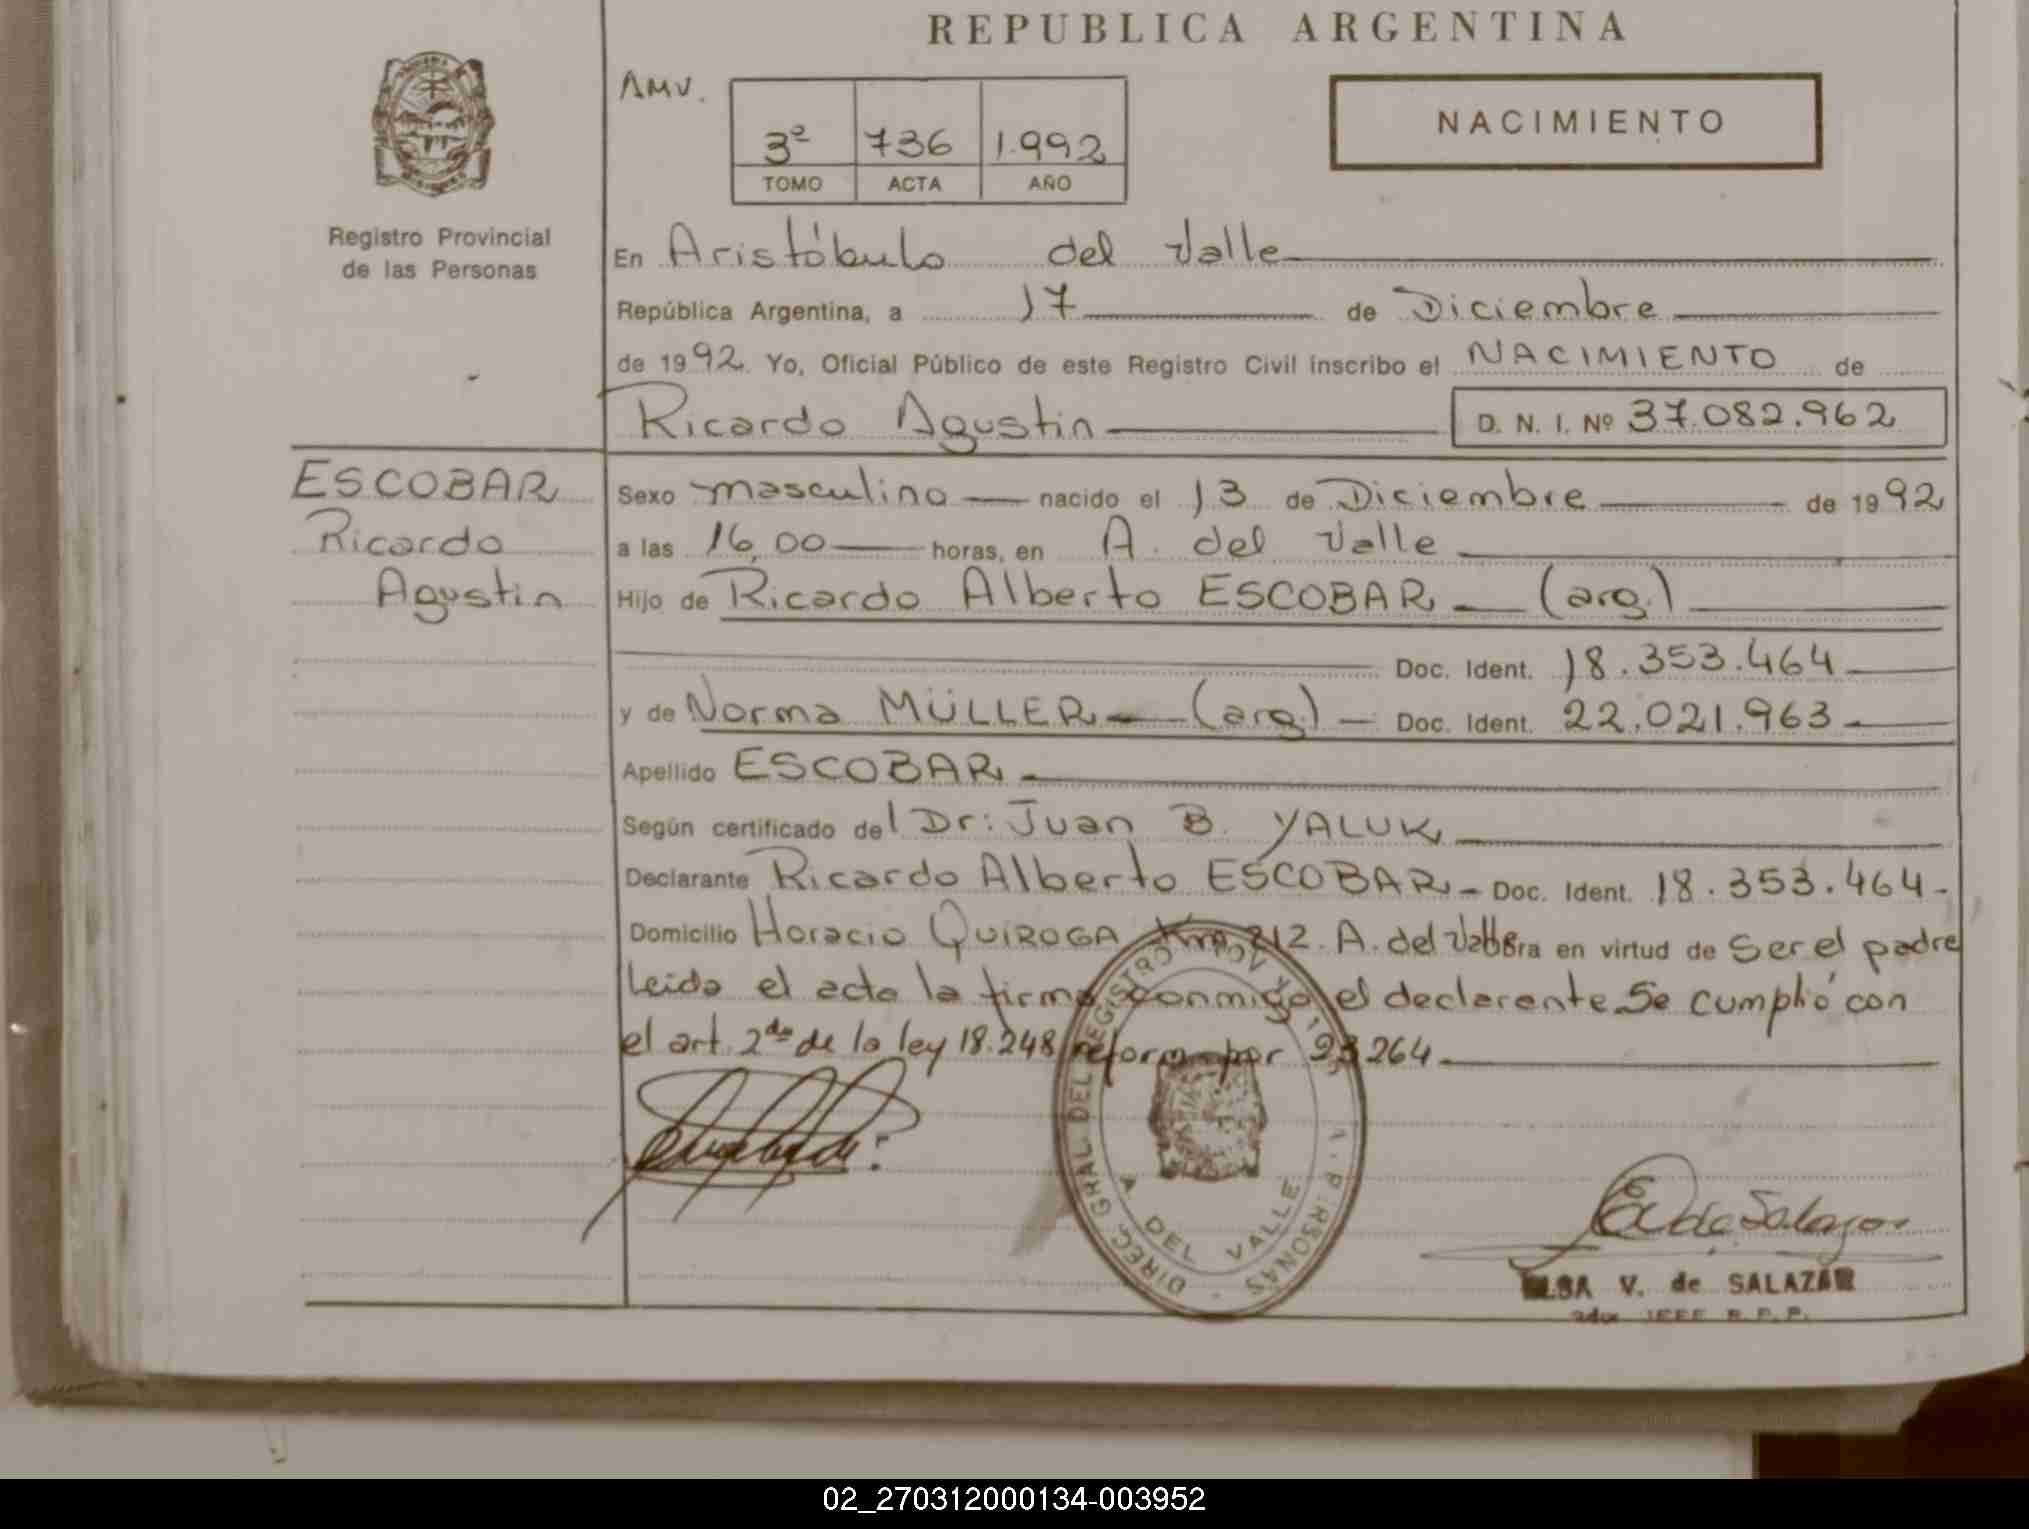 REPUBLICA ARGENTINA
AMV.
3º 736 1.992
TOMO ACTA AÑO
NACIMIENTO
Registro Provincial
de las Personas
En Aristóbulo del Valle
República Argentina, a 17 de Diciembre
de 1992. Yo, Oficial Público de este Registro Civil inscribo el NACIMIENTO de
Ricardo Agustin D. N. I. Nº 37.082.962
ESCOBAR
Ricardo
Agustin
Sexo masculino nacido el 13 de Diciembre de 1992
a las 16,00 horas, en A. del Valle
Hijo de Ricardo Alberto ESCOBAR (arg.)
Doc. Ident. 18.353.464
y de Norma MÜLLER (arg.) Doc. Ident. 22.021.963
Apellido ESCOBAR
Según certificado del Dr: Juan B. YALUK
Declarante Ricardo Alberto ESCOBAR Doc. Ident. 18.353.464
Domicilio Horacio QUIROGA Km. 212. A. del Valle en virtud de ser el padre
leida el acta la firma conmigo el declarante. Se cumplió con
el art. 2do de la ley 18.248 reform por 23264
DIREC. GRAL DEL REGISTRO PERSONAS
A DEL VALLE
E V de Salazar
ELSA V. de SALAZAR
JEFE R.P.P.
02_270312000134-003952